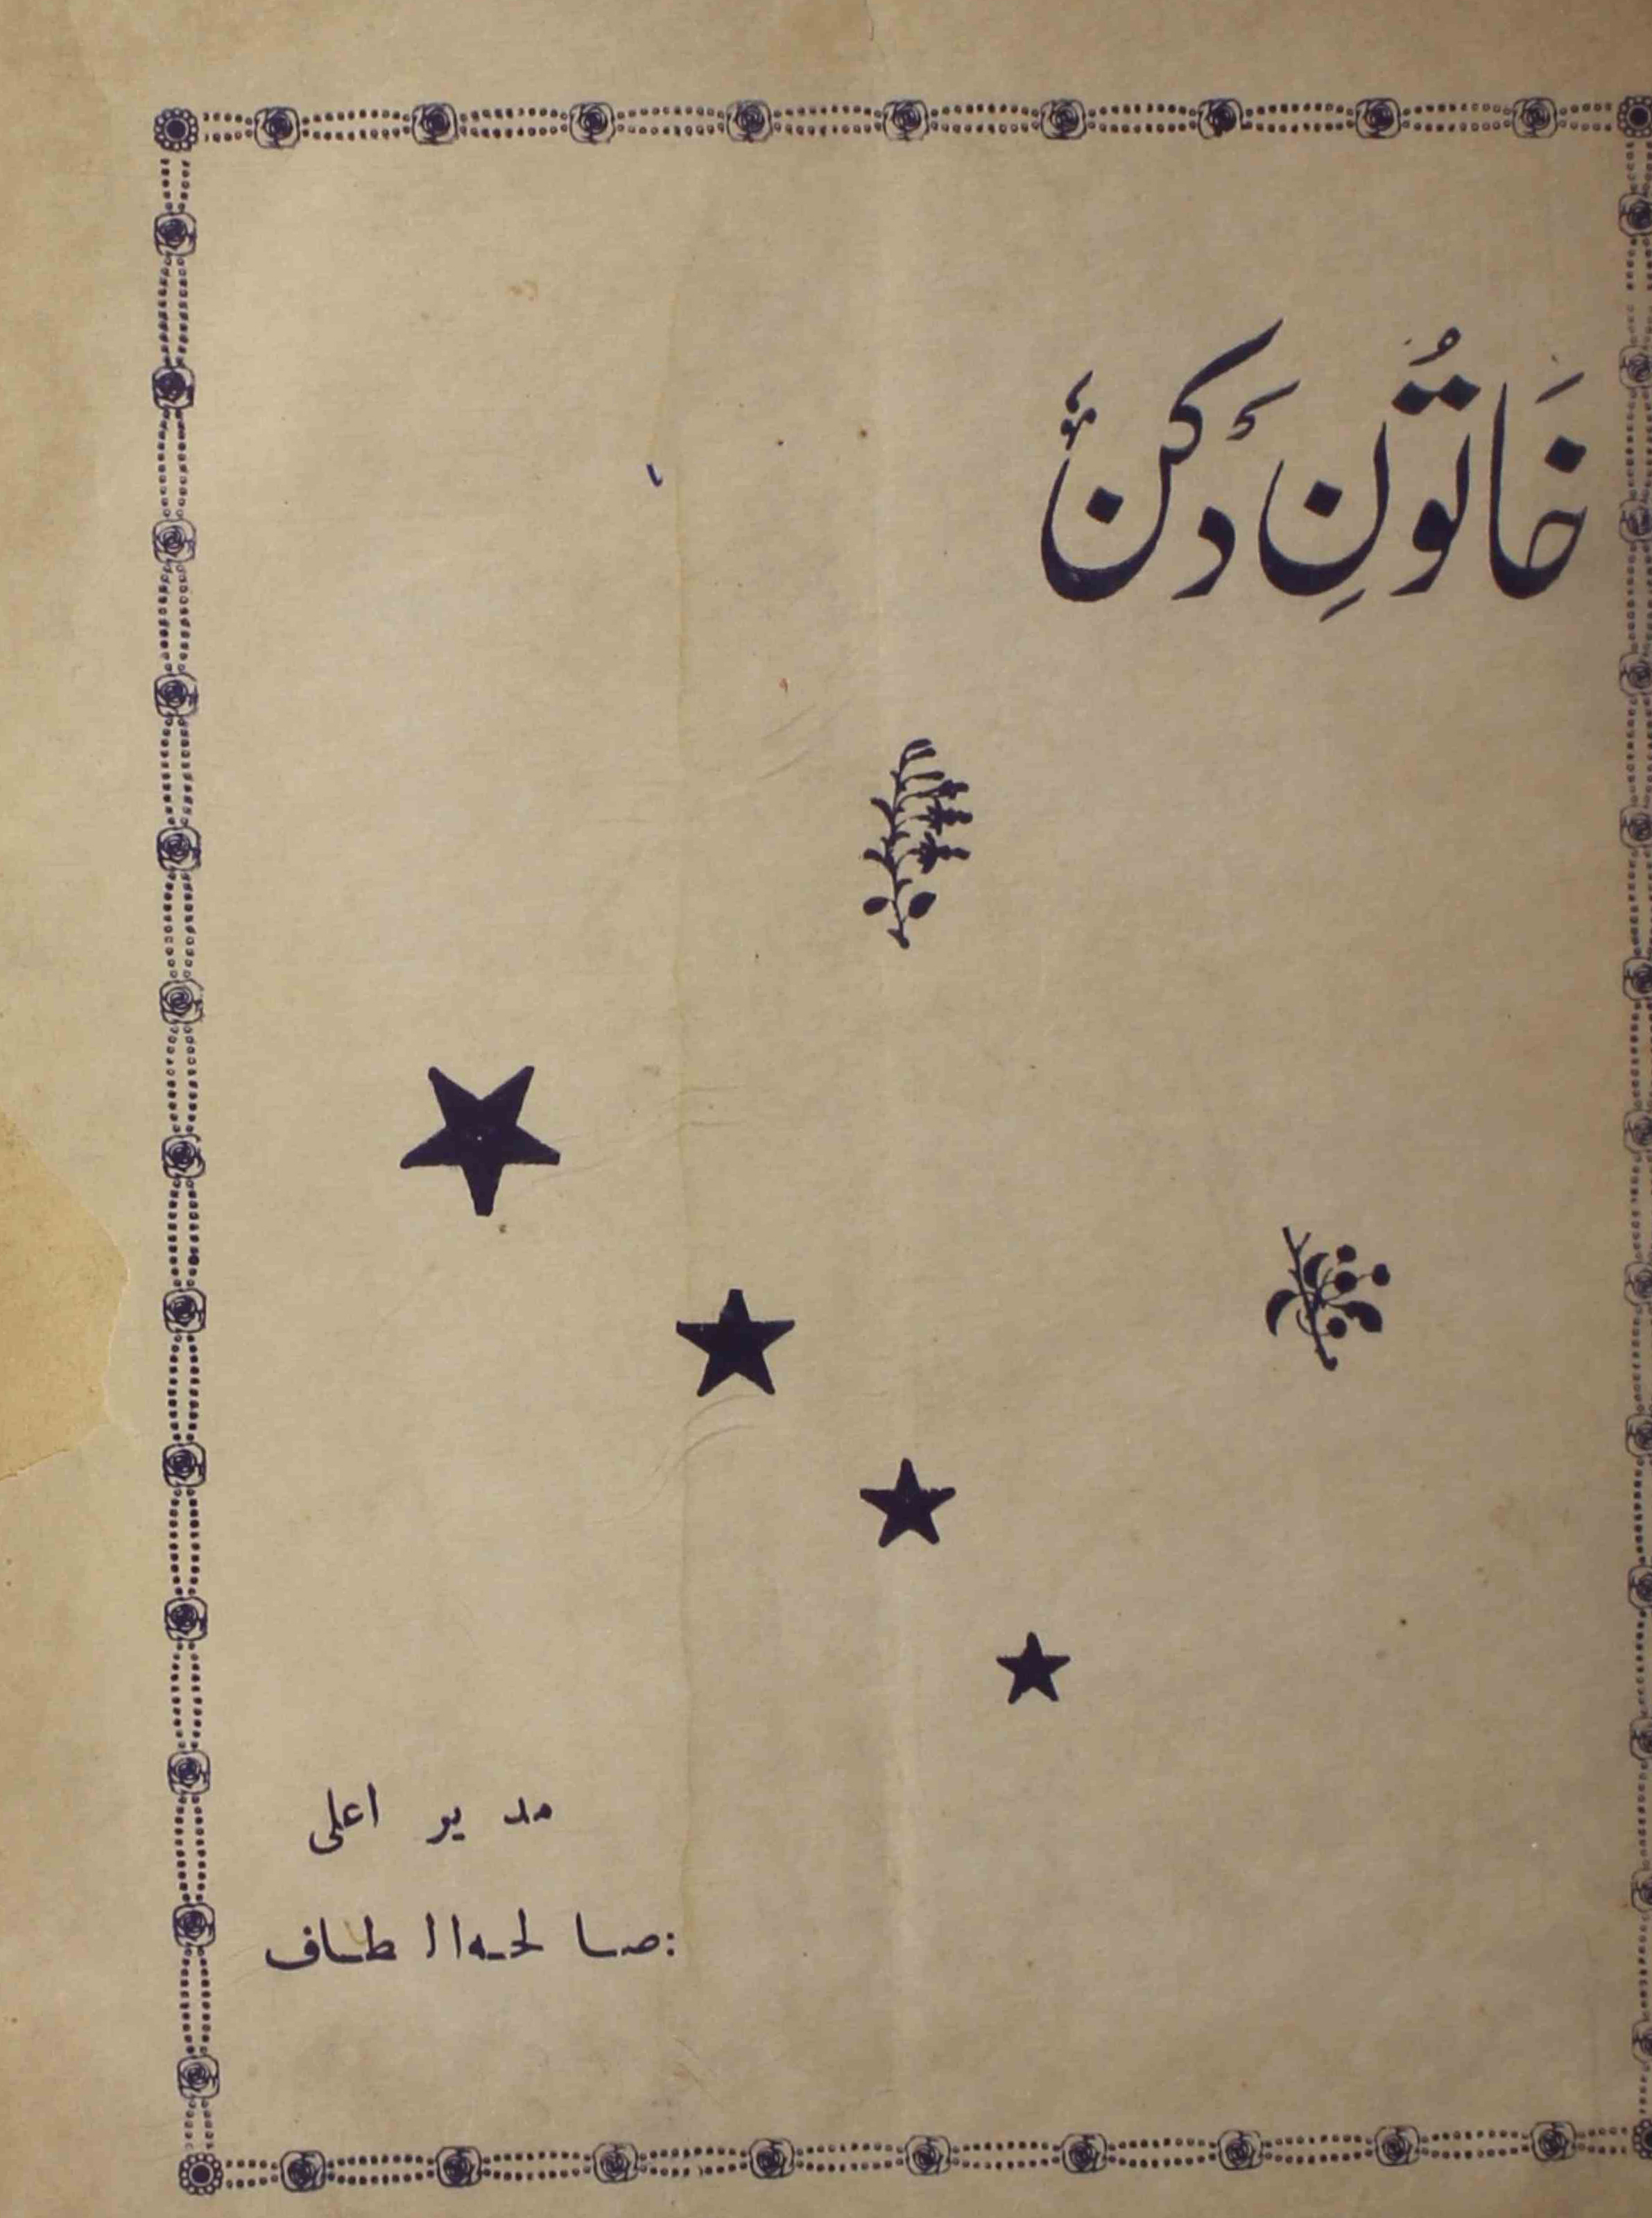 خَاتُونِ دَکن
مدیر اعلی
صالحہ الطاف: